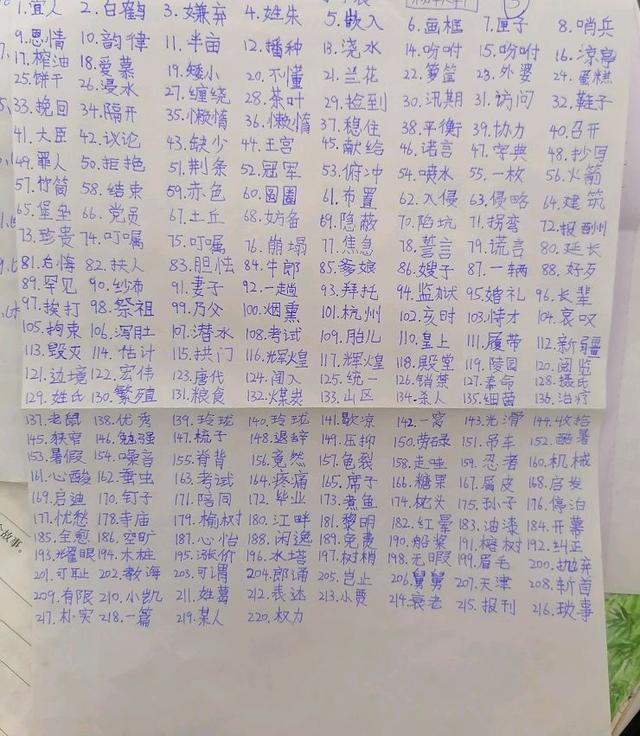 1.宜人 2.白鹤 3.嫌弃 4.姓朱 5.嵌入 6.画框 7.匣子 8.哨兵
9.恩情 10.韵律 11.半亩 12.播种 13.浇水 14.吩咐 15.吩咐 16.凉亭
17.榨油 18.爱慕 19.矮小 20.不懂 21.兰花 22.箩筐 23.外婆 24.蛋糕
25.饼干 26.浸水 27.缠绕 28.茶叶 29.捡到 30.汛期 31.访问 32.鞋子
33.挽回 34.隔开 35.懒惰 36.懒惰 37.稳住 38.平衡 39.协力 40.召开
41.大臣 42.议论 43.缺少 44.王宫 45.献给 46.诺言 47.字典 48.抄写
49.罪人 50.拒绝 51.荆条 52.冠军 53.俯冲 54.喷水 55.一枚 56.火箭
57.竹筒 58.结束 59.赤色 60.圆圈 61.布置 62.入侵 63.侵略 64.建筑
65.堡垒 66.党员 67.土丘 68.妨备 69.隐蔽 70.陷坑 71.拐弯 72.报酬
73.珍贵 74.叮嘱 75.叮嘱 76.崩塌 77.焦急 78.誓言 79.谎言 80.延长
81.后悔 82.扶人 83.胆怯 84.牛郎 85.爹娘 86.嫂子 87.一辆 88.好歹
89.罕见 90.纱布 91.妻子 92.一趟 93.拜托 94.监狱 95.婚礼 96.长辈
97.挨打 98.祭祖 99.乃父 100.烟熏 101.杭州 102.亥时 103.恃才 104.哀叹
105.拘束 106.泻肚 107.潜水 108.考试 109.胎儿 110.皇上 111.履带 112.新疆
113.毁灭 114.估计 115.拱门 116.辉煌 117.辉煌 118.殿堂 119.陵园 120.阅览
121.边境 122.宏伟 123.唐代 124.闯入 125.统一 126.销禁 127.奉命 128.摄氏
129.姓氏 130.繁殖 131.粮食 132.煤炭 133.山区 134.杀人 135.细菌 136.治疗
137.老鼠 138.优秀 139.玲珑 140.玲珑 141.歇凉 142.一窝 143.光滑 144.收拾
145.狭窄 146.勉强 147.梳子 148.退辞 149.压抑 150.劳碌 151.吊车 152.酷暑
153.暑假 154.噪音 155.脊背 156.竟然 157.龟裂 158.走哇 159.忍者 160.机械
161.心酸 162.蚕虫 163.考试 164.疼痛 165.席子 166.糖果 167.屑皮 168.启发
169.启迪 170.钉子 171.陪同 172.毕业 173.煮鱼 174.枕头 175.孙子 176.停泊
177.忧愁 178.寺庙 179.榆树 180.江畔 181.黎明 182.红晕 183.油漆 184.开幕
185.全愈 186.空旷 187.心怡 188.闲逸 189.免费 190.船桨 191.榕树 192.纠正
193.耀眼 194.木桩 195.涨价 196.水塔 197.树梢 198.无暇 199.眉毛 200.抛弃
201.可耻 202.教诲 203.可谓 204.郎诵 205.岂止 206.舅舅 207.天津 208.斩首
209.有限 210.小凯 211.姓葛 212.表述 213.小贾 214.衰老 215.报刊 216.琐事
217.朴实 218.一篇 219.某人 220.权力